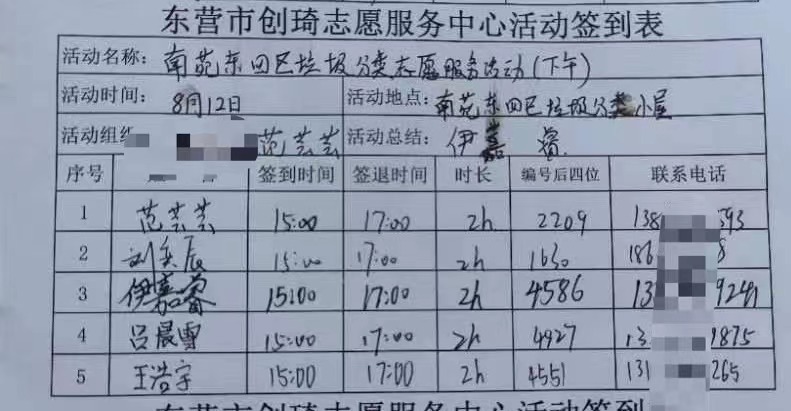 东营市创琦志愿服务中心活动签到表
活动名称: 南苑东四区垃圾分类志愿服务活动(下午)
活动时间: 8月12日 活动地点: 南苑东四区垃圾分类小屋
活动组织 范芸芸 活动总结: 伊嘉
序号 签到时间 签退时间 时长 编号后四位 联系电话
1 范芸芸 15:00 17:00 2h 2209 138 593
2 刘奕辰 15:00 17:00 2h 1630 186 8
3 伊嘉睿 15:00 17:00 2h 4586 13 9241
4 吕晨雪 15:00 17:00 2h 4927 13 1875
5 王浩宇 15:00 17:00 2h 4551 131 265
东营市创琦志愿服务中心活动签到